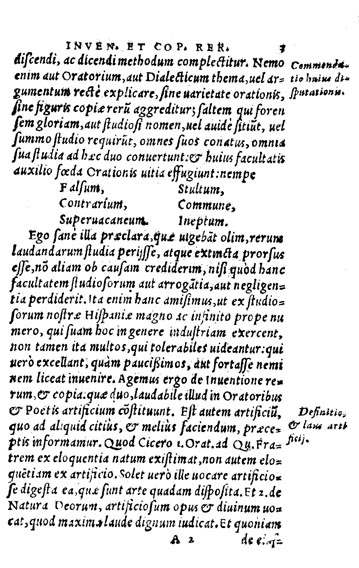 INVEN. ET COP. RER. 3
discendi, ac dicendi methodum complectitur. Nemo
enim aut Oratorium, aut Dialecticum thema, uel ar=
gumentum rectè explicare, sine uarietate orationis,
sine figuris copiæ rerū aggreditur; saltem qui foren
sem gloriam, aut studiosi nomen, uel auidè sitiūt, uel
summo studio requirūt, omnes suos conatus, omnia
sua studia ad hæc duo conuertunt: & huius facultatis
auxilio fœda Orationis uitia effugiunt: nempe
Falsum, Stultum,
Contrarium, Commune,
Superuacaneum. Ineptum.
Ego sanè illa præclara, quæ uigebāt olim, rerum
laudandarum studia perijsse, atque extincta prorsus
esse, nō aliam ob causam crediderim, nisi quòd hanc
facultatem studiosorum aut arrogātia, aut negligen=
tia perdiderit. Ita enim hanc amisimus, ut ex studio=
sorum nostræ Hispaniæ magno ac infinito prope nu
mero, qui suam hoc in genere industriam exercent,
non tamen ita multos, qui tolerabiles uideantur: qui
uerò excellant, quàm paucißimos, aut fortasse nemi
nem liceat inuenire. Agemus ergo de Inuentione re=
rum, & copia: quæ duo, laudabile illud in Oratoribus
& Poetis artificium cōstituunt. Est autem artificiū,
quo ad aliquid citius, & melius faciendum, præce=
ptis informamur. Quod Cicero 1. Orat. ad Qu. Fra=
trem ex eloquentia natum existimat, non autem elo=
quētiam ex artificio. Solet uerò ille uocare artificio=
se digesta ea, quæ sunt arte quadam disposita. Et 2. de
Natura Deorum, artificiosum opus & diuinum uo=
cat, quod maxima laude dignum iudicat. Et quoniam
A 2
Commenda=
tio huius di=
sputationis.
Definitio,
& laus arti
ficij.